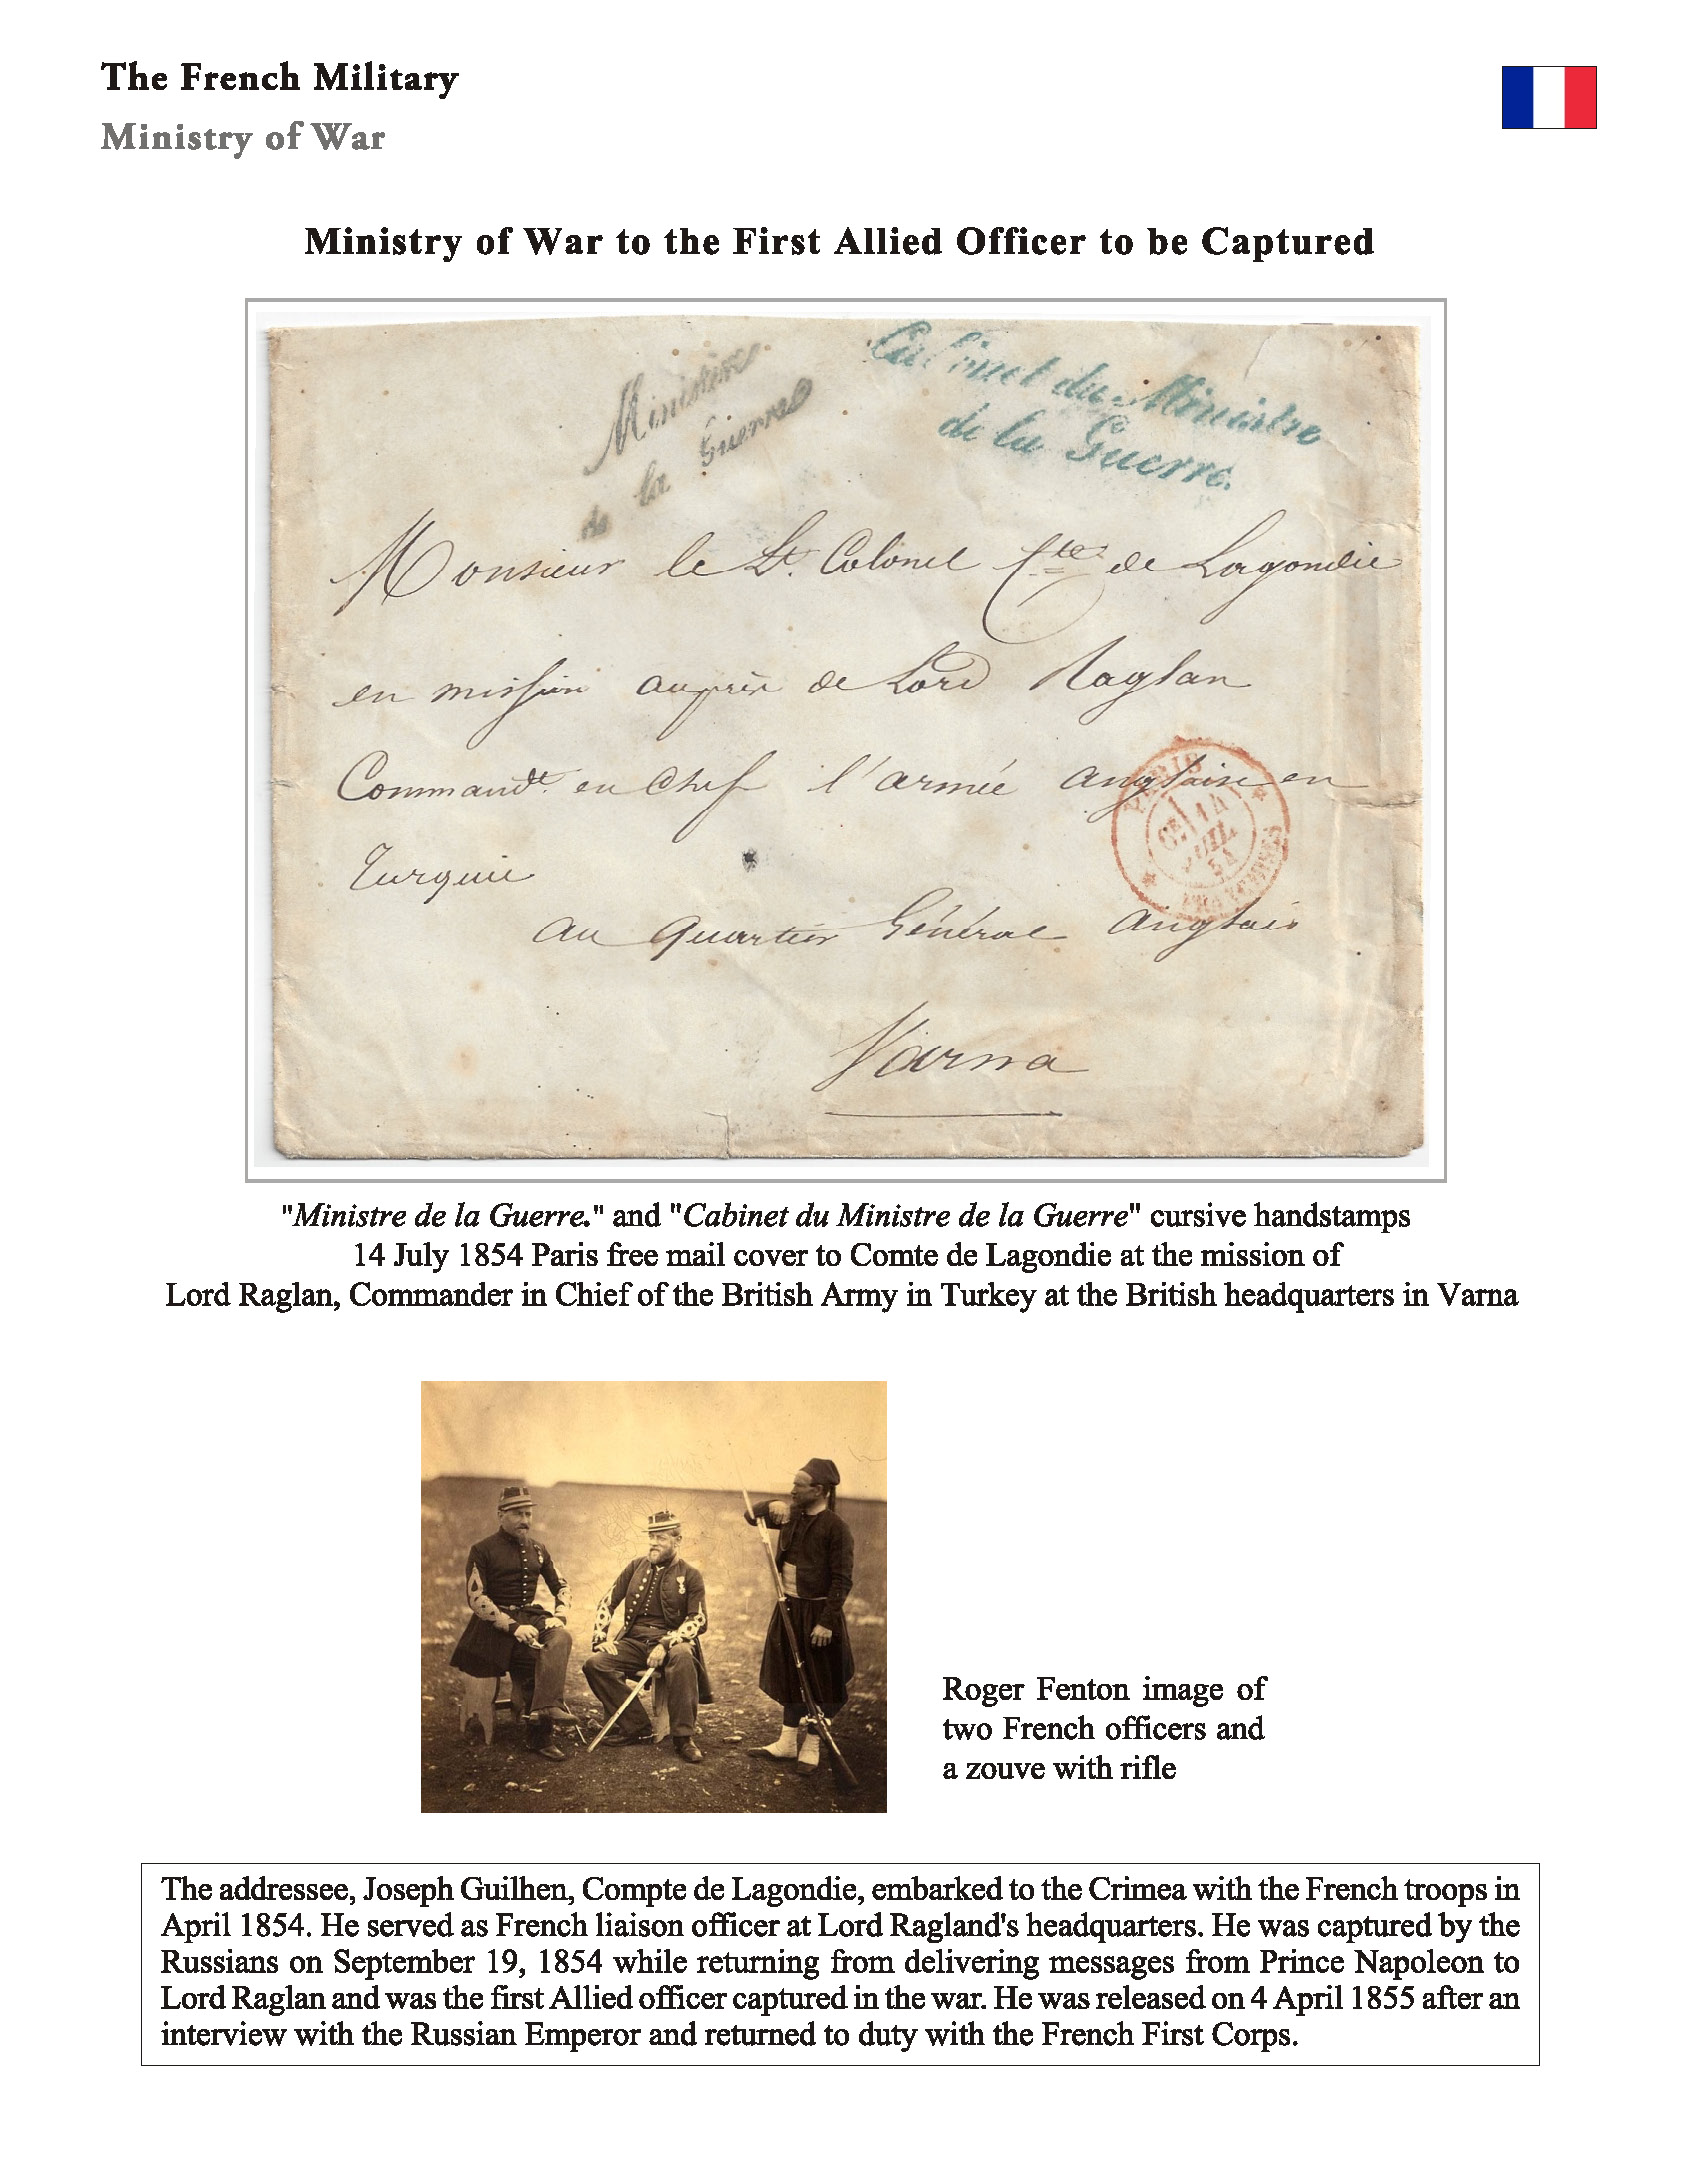 The French Military
Ministry of War
Ministry of War to the First Allied Officer to be Captured
Ministère
de la Guerre
Cabinet du Ministre
de la Guerre.
Monsieur le Lt. Colonel Cte de Lagondie
en mission auprès de Lord Raglan
Commandt. en Chef l'armée anglaise en
Turquie
au Quartier Général anglais
Varna
PARIS
14
JUIL.
54
"Ministre de la Guerre." and "Cabinet du Ministre de la Guerre" cursive handstamps
14 July 1854 Paris free mail cover to Comte de Lagondie at the mission of
Lord Raglan, Commander in Chief of the British Army in Turkey at the British headquarters in Varna
Roger Fenton image of
two French officers and
a zouve with rifle
The addressee, Joseph Guilhen, Compte de Lagondie, embarked to the Crimea with the French troops in
April 1854. He served as French liaison officer at Lord Ragland's headquarters. He was captured by the
Russians on September 19, 1854 while returning from delivering messages from Prince Napoleon to
Lord Raglan and was the first Allied officer captured in the war. He was released on 4 April 1855 after an
interview with the Russian Emperor and returned to duty with the French First Corps.